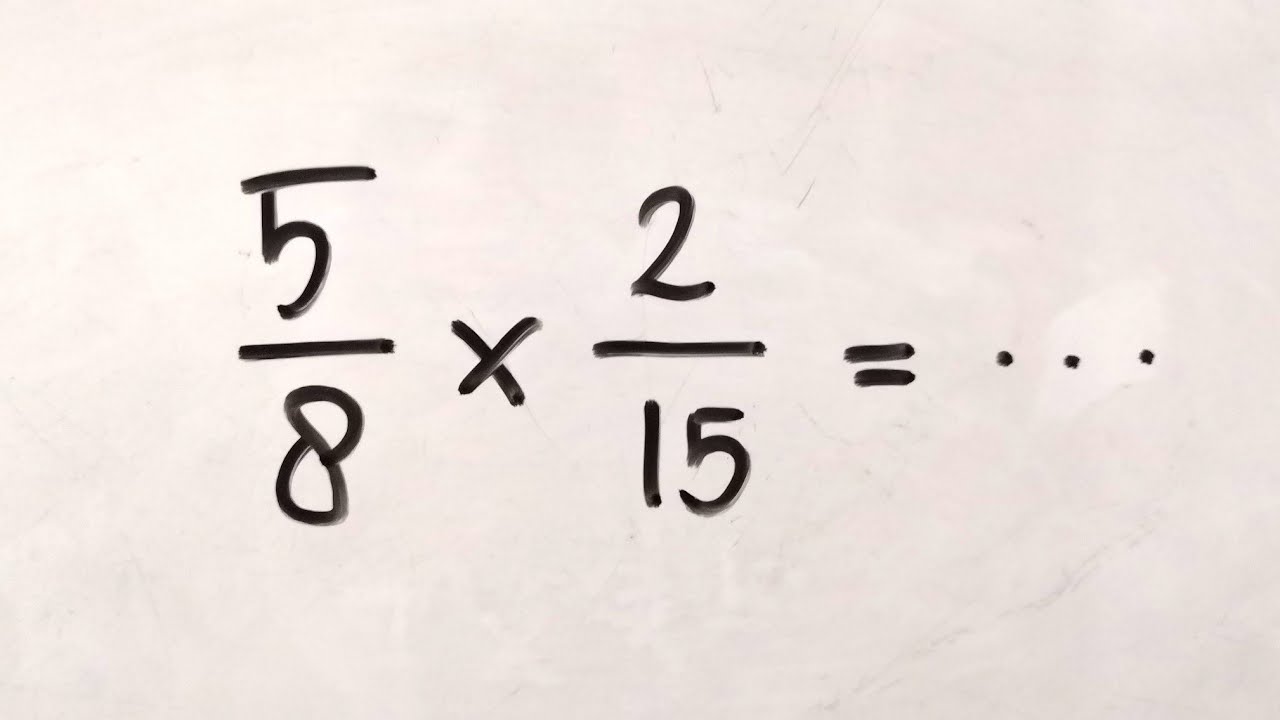 5/8 × 2/15 = ...